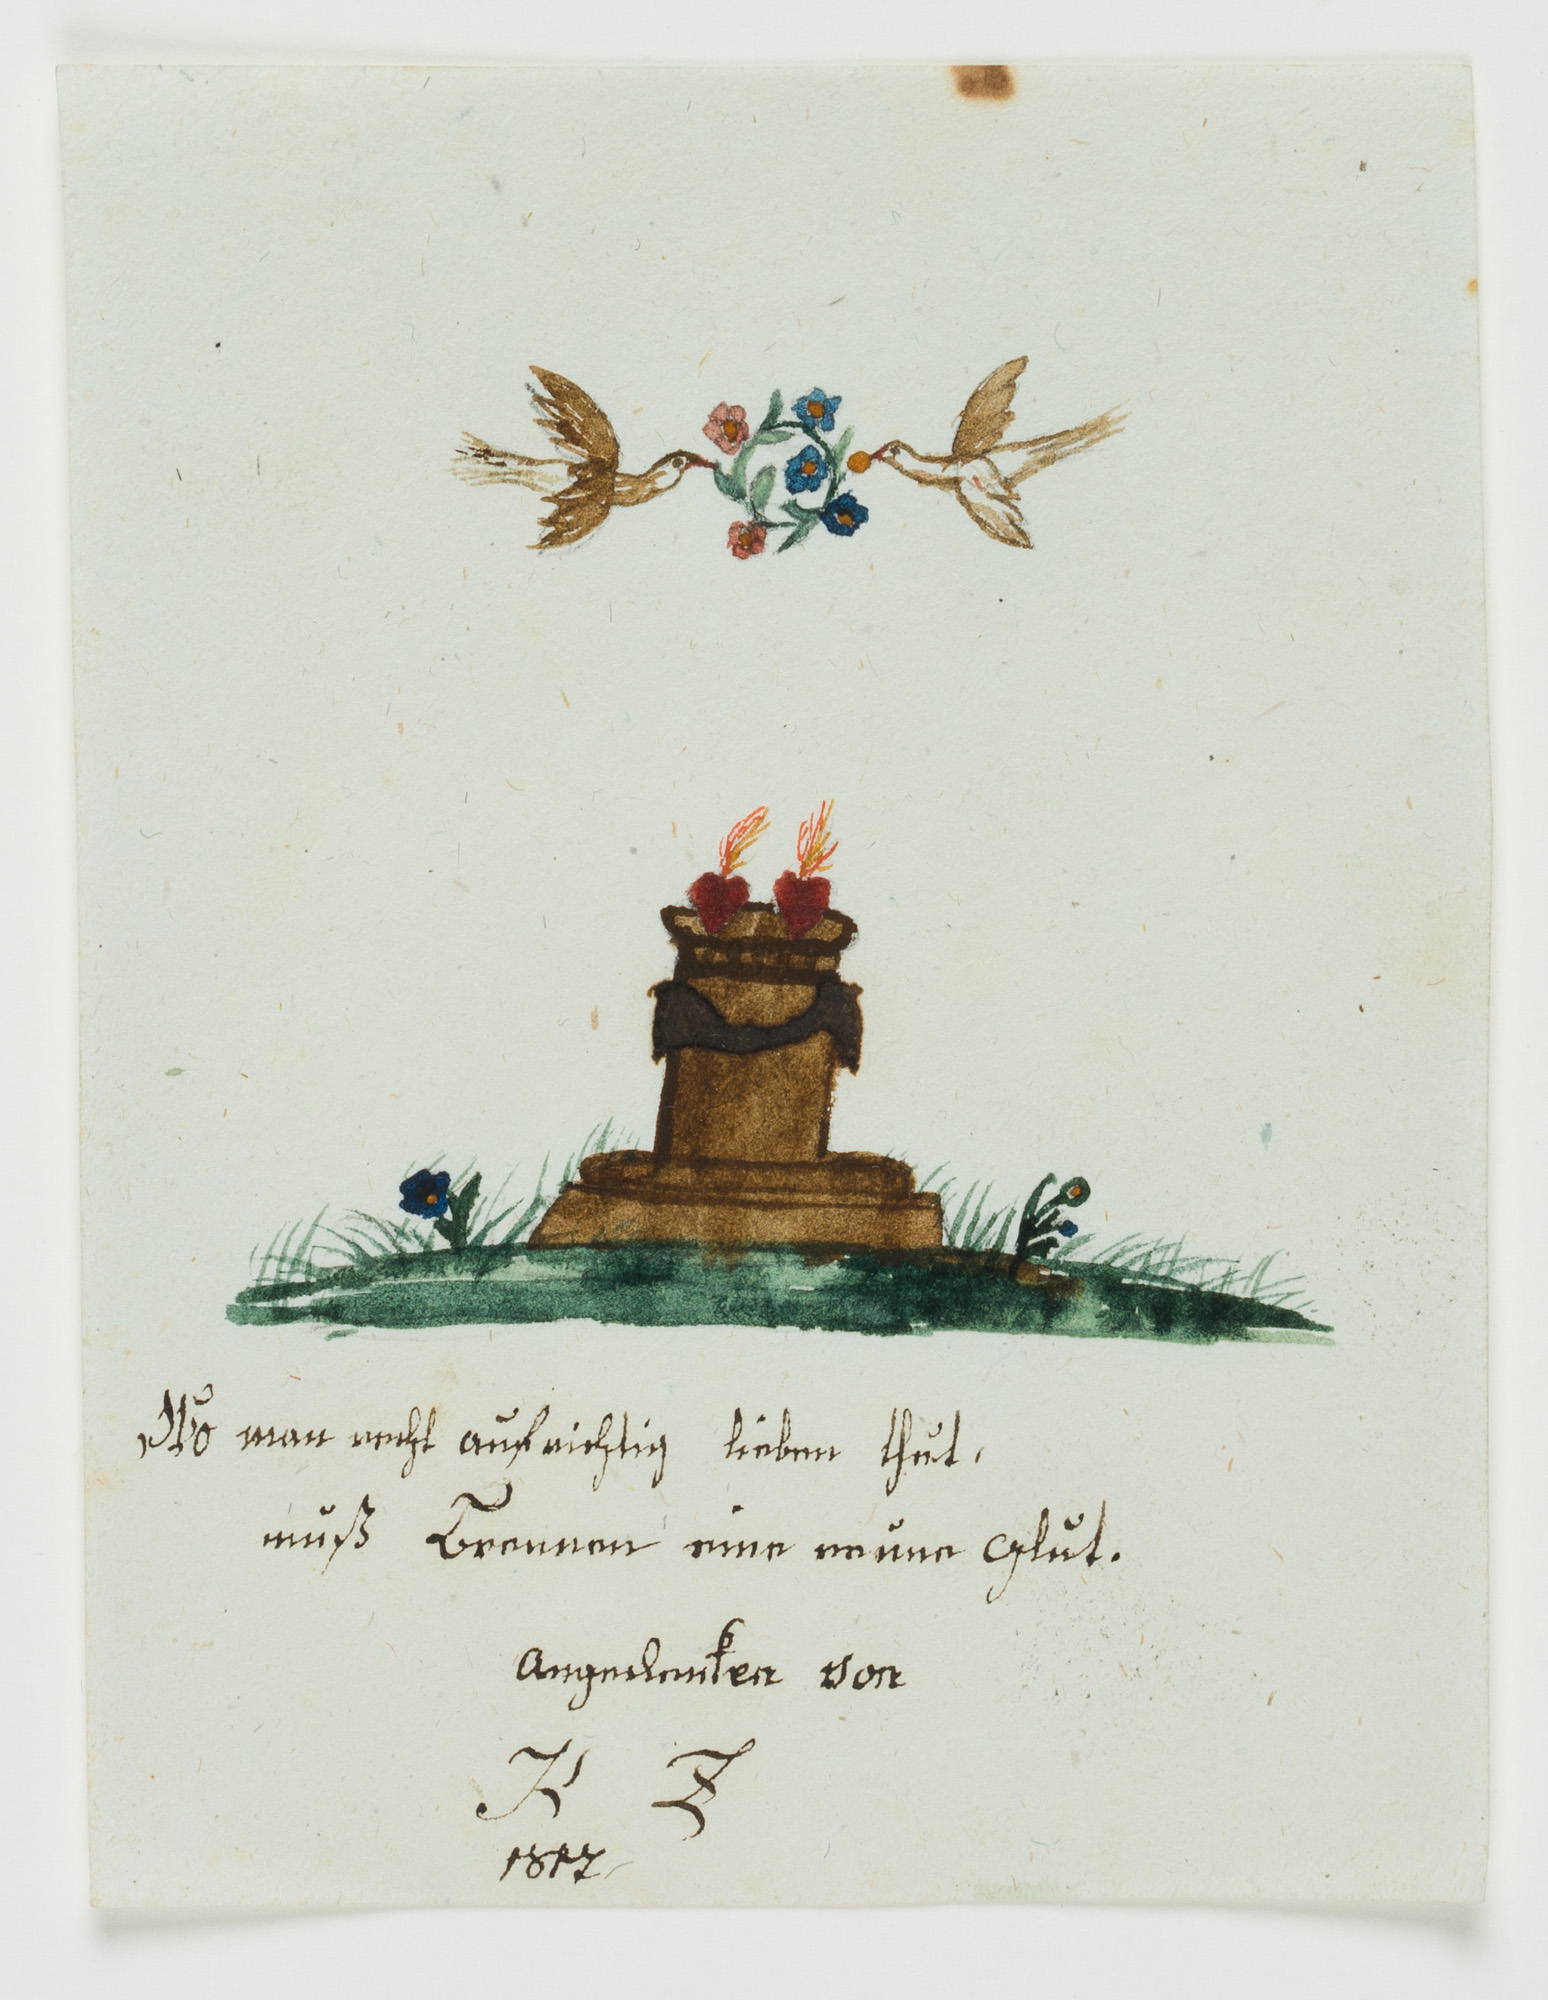 Wo man recht aufrichtig lieben thut,
muß Brennen eine reüne Glut.
Angedenken von
K F
1817